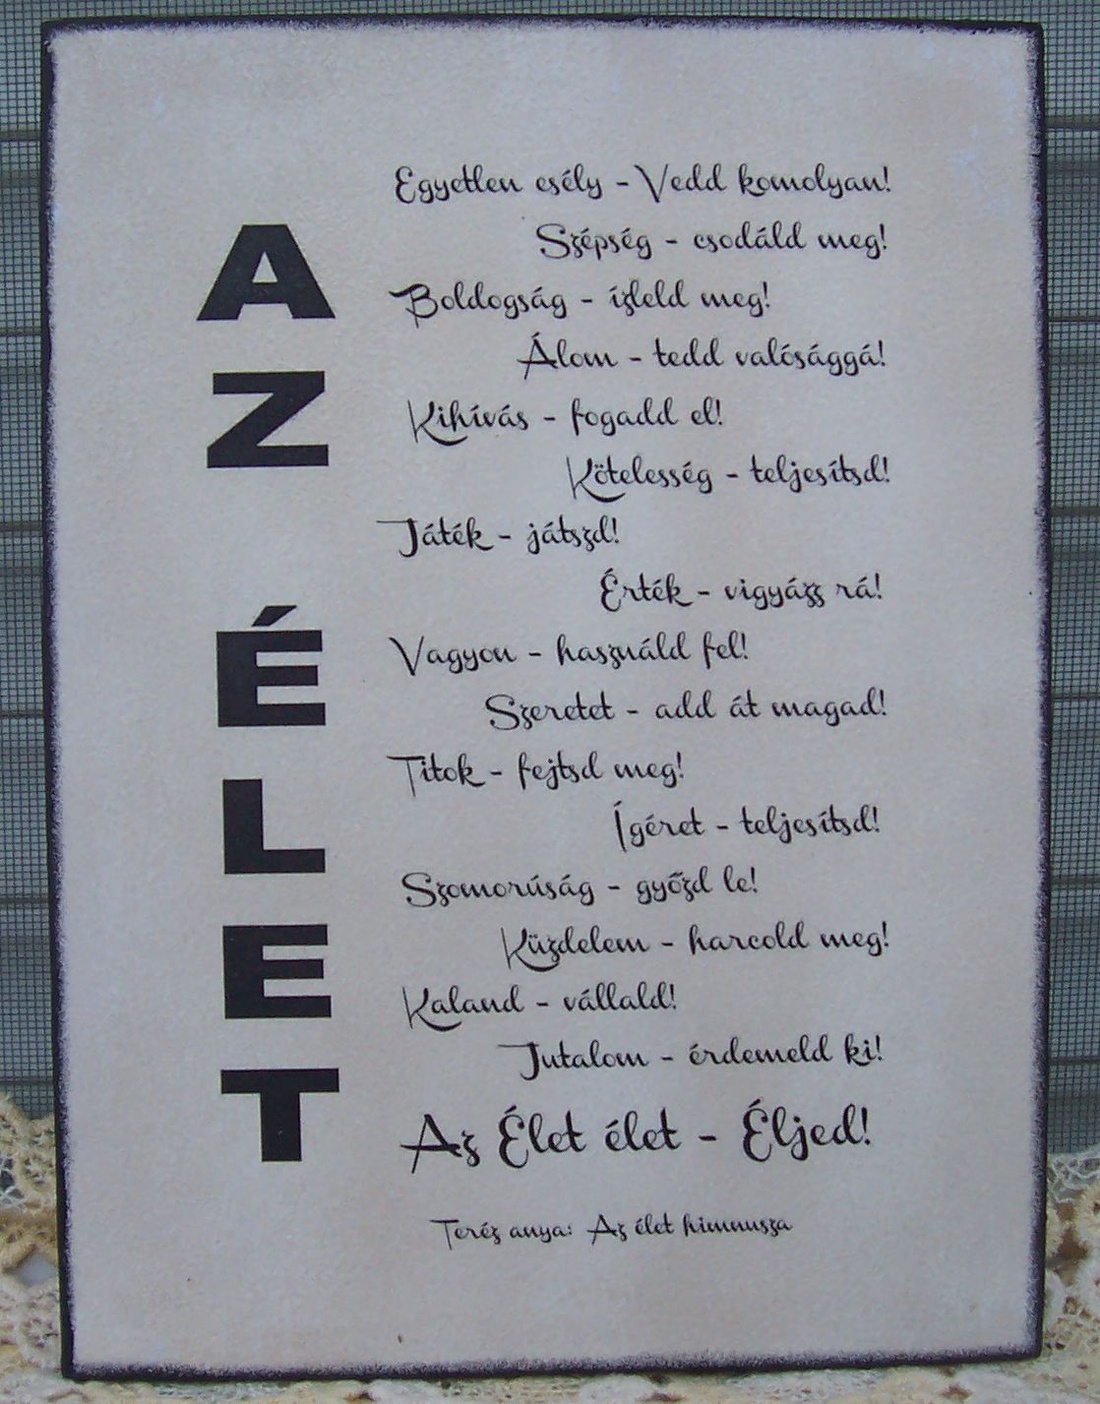 AZ ÉLET
Egyetlen esély - Vedd komolyan!
Szépség - csodáld meg!
Boldogság - ízleld meg!
Álom - tedd valósággá!
Kihívás - fogadd el!
Kötelesség - teljesítsd!
Játék - játszd!
Érték - vigyázz rá!
Vagyon - használd fel!
Szeretet - add át magad!
Titok - fejtsd meg!
Ígéret - teljesítsd!
Szomorúság - győzd le!
Küzdelem - harcold meg!
Kaland - vállald!
Jutalom - érdemeld ki!
Az Élet élet - Éljed!
Teréz anya: Az élet himnusza